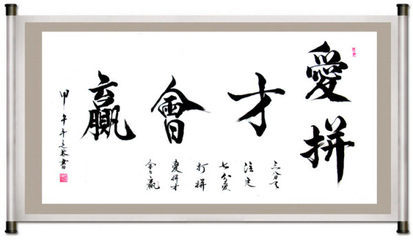 愛拼才會贏
三分天
注定
七分靠
打拼
愛拼才
會贏
甲午年 書